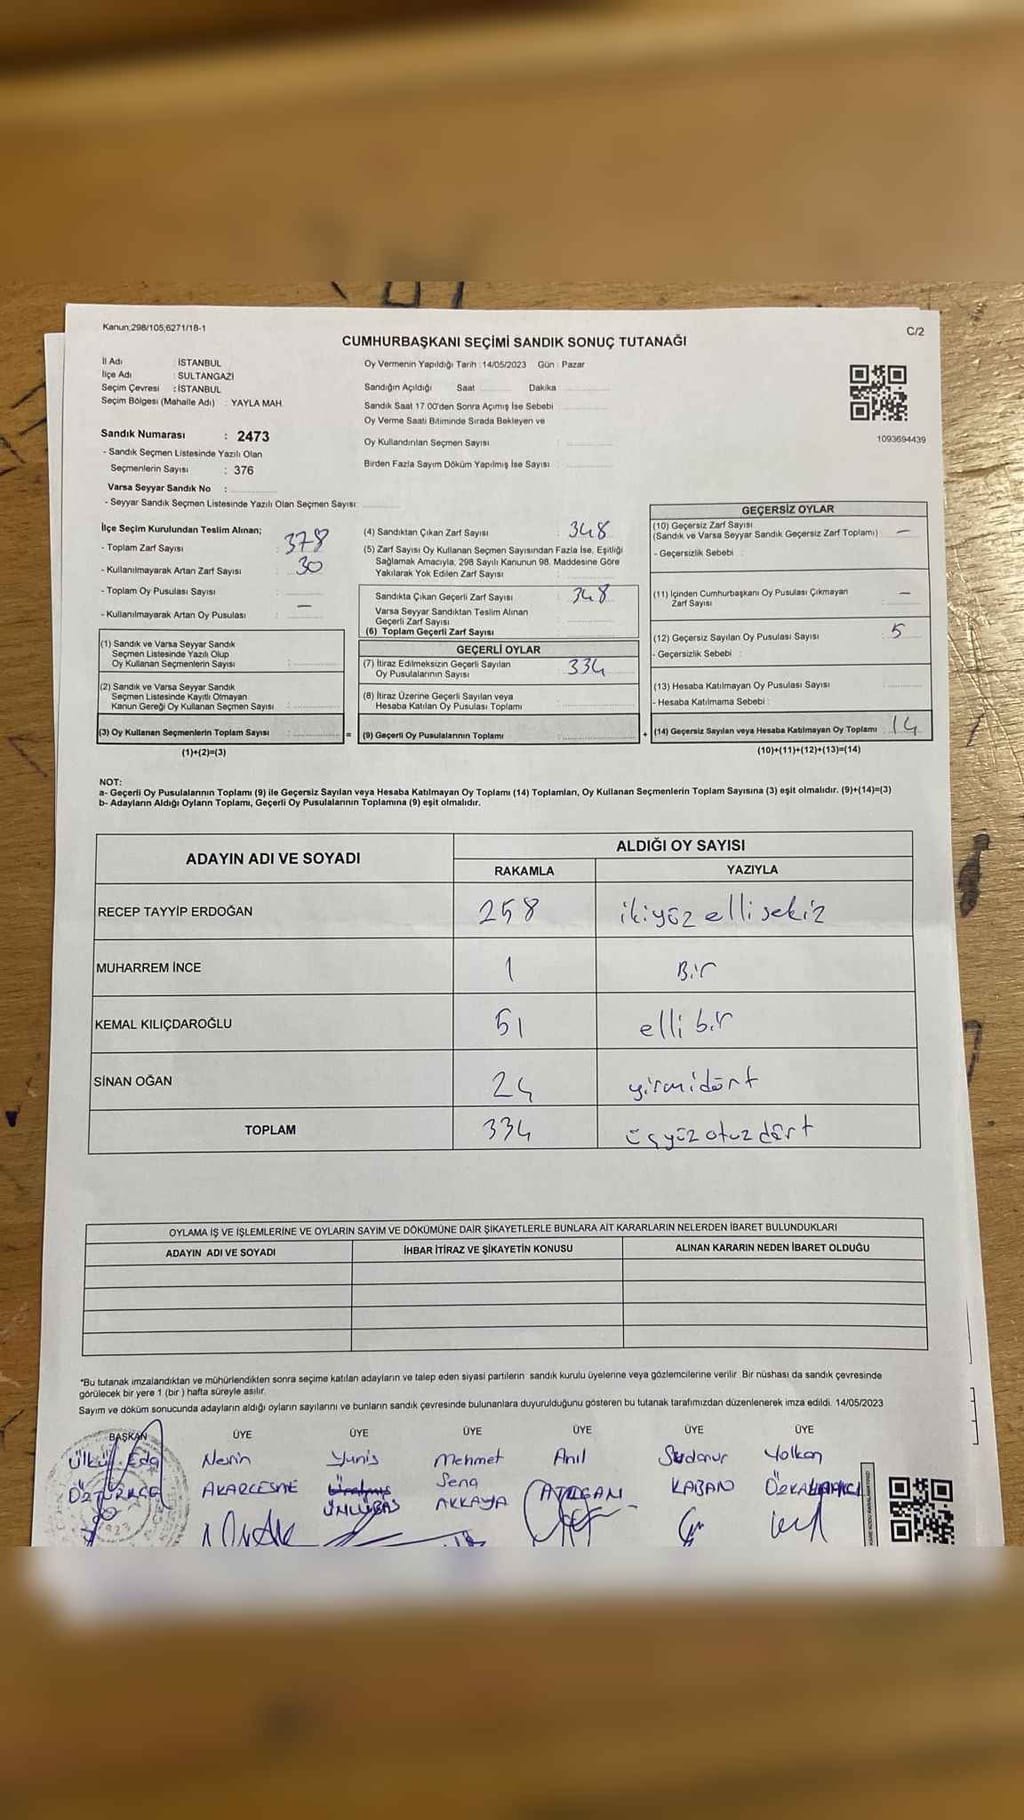 Kanun;298/105;6271/18-1
C/2
CUMHURBAŞKANI SEÇİMİ SANDIK SONUÇ TUTANAĞI
İl Adı : İSTANBUL
İlçe Adı : SULTANGAZİ
Seçim Çevresi : İSTANBUL
Seçim Bölgesi (Mahalle Adı) : YAYLA MAH.
Sandık Numarası : 2473
- Sandık Seçmen Listesinde Yazılı Olan
Seçmenlerin Sayısı : 376
Varsa Seyyar Sandık No :
- Seyyar Sandık Seçmen Listesinde Yazılı Olan Seçmen Sayısı
Oy Vermenin Yapıldığı Tarih : 14/05/2023 Gün : Pazar
Sandığın Açıldığı Saat Dakika
Sandık Saat 17.00'den Sonra Açımış İse Sebebi
Oy Verme Saati Bitiminde Sırada Bekleyen ve
Oy Kullandırılan Seçmen Sayısı :
Birden Fazla Sayım Döküm Yapılmış İse Sayısı :
1093694439
İlçe Seçim Kurulundan Teslim Alınan;
- Toplam Zarf Sayısı : 378
- Kullanılmayarak Artan Zarf Sayısı : 30
- Toplam Oy Pusulası Sayısı :
- Kullanılmayarak Artan Oy Pusulası : —
(1) Sandık ve Varsa Seyyar Sandık
Seçmen Listesinde Yazılı Olup
Oy Kullanan Seçmenlerin Sayısı :
(2) Sandık ve Varsa Seyyar Sandık
Seçmen Listesinde Kayıtlı Olmayan
Kanun Gereği Oy Kullanan Seçmen Sayısı :
(3) Oy Kullanan Seçmenlerin Toplam Sayısı :
(1)+(2)=(3)
(4) Sandıktan Çıkan Zarf Sayısı : 348
(5) Zarf Sayısı Oy Kullanan Seçmen Sayısından Fazla İse, Eşitliği
Sağlamak Amacıyla, 298 Sayılı Kanunun 98. Maddesine Göre
Yakılarak Yok Edilen Zarf Sayısı :
Sandıkta Çıkan Geçerli Zarf Sayısı : 348
Varsa Seyyar Sandıktan Teslim Alınan
Geçerli Zarf Sayısı :
(6) Toplam Geçerli Zarf Sayısı
GEÇERLİ OYLAR
(7) İtiraz Edilmeksizin Geçerli Sayılan
Oy Pusulalarının Sayısı : 334
(8) İtiraz Üzerine Geçerli Sayılan veya
Hesaba Katılan Oy Pusulası Toplamı
= (9) Geçerli Oy Pusulalarının Toplamı :
GEÇERSİZ OYLAR
(10) Geçersiz Zarf Sayısı
(Sandık ve Varsa Seyyar Sandık Geçersiz Zarf Toplamı) : —
- Geçersizlik Sebebi :
(11) İçinden Cumhurbaşkanı Oy Pusulası Çıkmayan
Zarf Sayısı : —
(12) Geçersiz Sayılan Oy Pusulası Sayısı : 5
- Geçersizlik Sebebi :
(13) Hesaba Katılmayan Oy Pusulası Sayısı :
- Hesaba Katılmama Sebebi :
+ (14) Geçersiz Sayılan veya Hesaba Katılmayan Oy Toplamı : 14
(10)+(11)+(12)+(13)=(14)
NOT:
a- Geçerli Oy Pusulalarının Toplamı (9) ile Geçersiz Sayılan veya Hesaba Katılmayan Oy Toplamı (14) Toplamları, Oy Kullanan Seçmenlerin Toplam Sayısına (3) eşit olmalıdır. (9)+(14)=(3)
b- Adayların Aldığı Oyların Toplamı, Geçerli Oy Pusulalarının Toplamına (9) eşit olmalıdır.
ADAYIN ADI VE SOYADI
ALDIĞI OY SAYISI
RAKAMLA YAZIYLA
RECEP TAYYİP ERDOĞAN 258 ikiyüz elli sekiz
MUHARREM İNCE 1 Bir
KEMAL KILIÇDAROĞLU 51 elli bir
SİNAN OĞAN 24 yirmidört
TOPLAM 334 üçyüz otuz dört
OYLAMA İŞ VE İŞLEMLERİNE VE OYLARIN SAYIM VE DÖKÜMÜNE DAİR ŞİKAYETLERLE BUNLARA AİT KARARLARIN NELERDEN İBARET BULUNDUKLARI
ADAYIN ADI VE SOYADI İHBAR İTİRAZ VE ŞİKAYETİN KONUSU ALINAN KARARIN NEDEN İBARET OLDUĞU
"Bu tutanak imzalandıktan ve mühürlendikten sonra seçime katılan adayların ve talep eden siyasi partilerin sandık kurulu üyelerine veya gözlemcilerine verilir. Bir nüshası da sandık çevresinde
görülecek bir yere 1 (bir ) hafta süreyle asılır.
Sayım ve döküm sonucunda adayların aldığı oyların sayılarını ve bunların sandık çevresinde bulunanlara duyurulduğunu gösteren bu tutanak tarafımızdan düzenlenerek imza edildi. 14/05/2023
BAŞKAN ÜYE ÜYE ÜYE ÜYE ÜYE ÜYE
Ülkü Eda Nesrin Yunis Mehmet Anıl Sudanur Volkan
Sena
AKKAYA KABAN